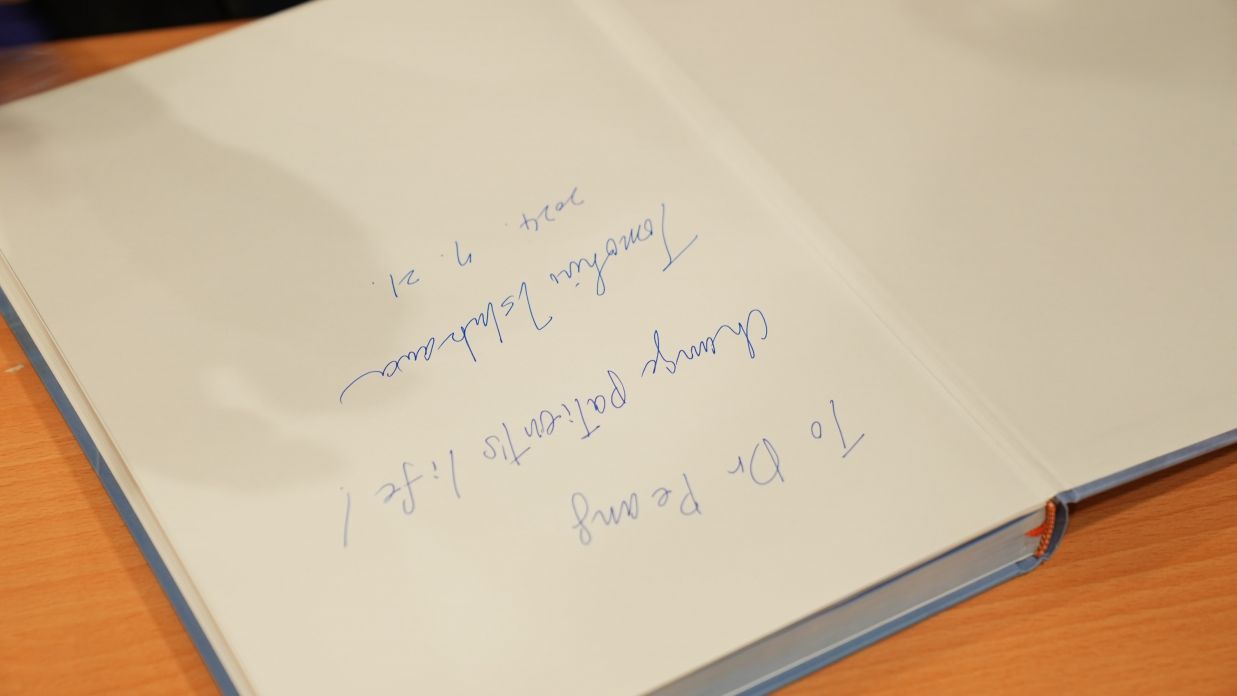 To Dr Peang
Change patient's life!
Tomohiro Ishikawa
2024. 7. 21.